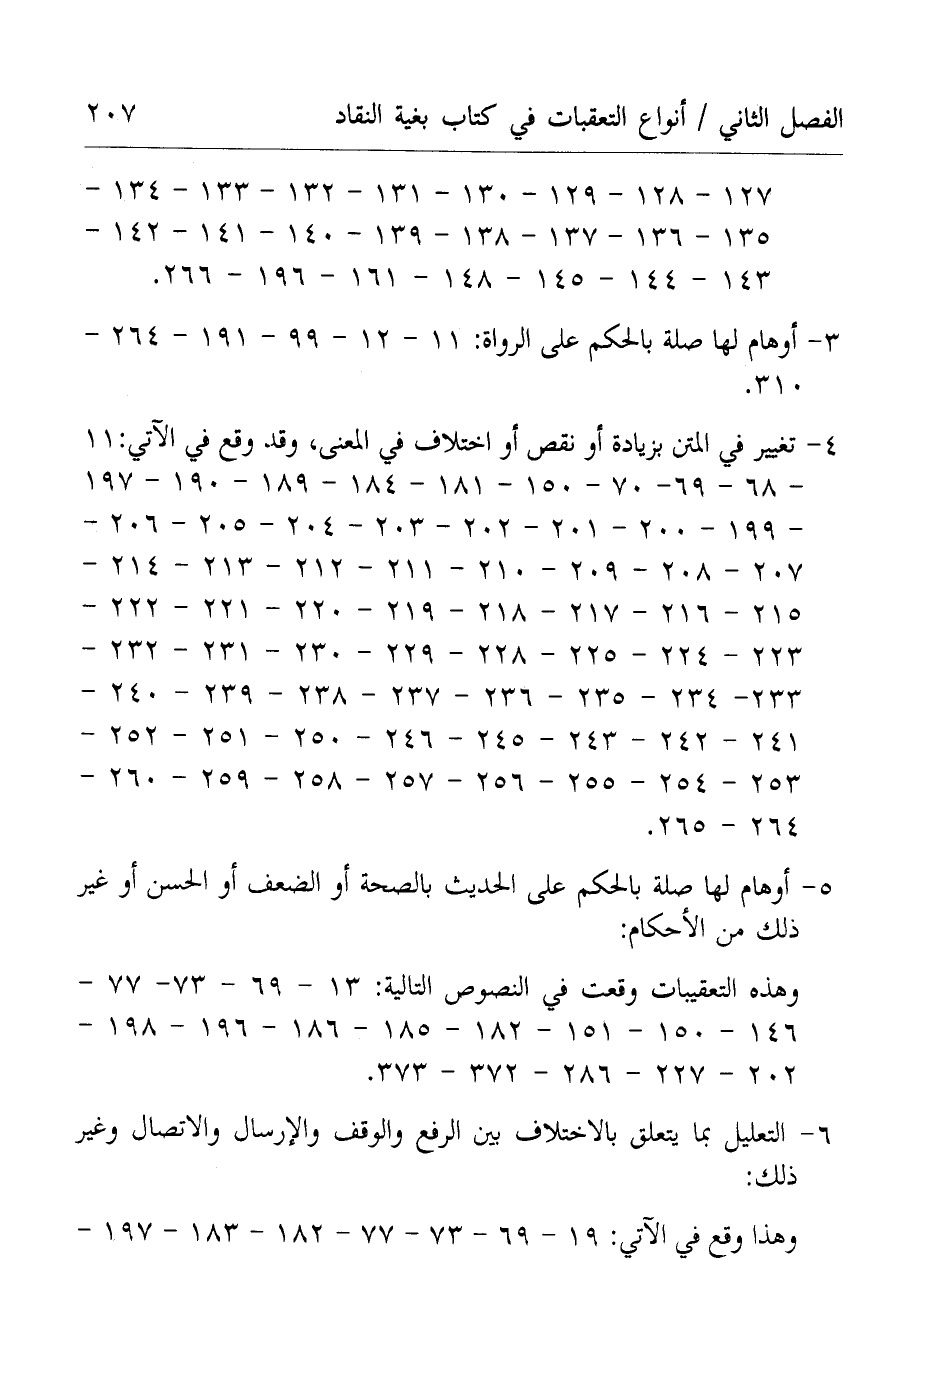 الفصل الثاني / أنواع التعقبات في كتاب بغية النقاد ٢٠٧
١٢٧ - ١٢٨ - ١٢٩ - ١٣٠ - ١٣١ - ١٣٢ - ١٣٣ - ١٣٤ -
١٣٥ - ١٣٦ - ١٣٧ - ١٣٨ - ١٣٩ - ١٤٠ - ١٤١ - ١٤٢ -
١٤٣ - ١٤٤ - ١٤٥ - ١٤٨ - ١٦١ - ١٩٦ - ٢٦٦.
٣- أوهام لها صلة بالحكم على الرواة: ١١ - ١٢ - ٩٩ - ١٩١ - ٢٦٤ -
٣١٠.
٤- تغيير في المتن بزيادة أو نقص أو اختلاف في المعنى، وقد وقع في الآتي: ١١
- ٦٨ - ٦٩- ٧٠ - ١٥٠ - ١٨١ - ١٨٤ - ١٨٩ - ١٩٠ - ١٩٧
- ١٩٩ - ٢٠٠ - ٢٠١ - ٢٠٢ - ٢٠٣ - ٢٠٤ - ٢٠٥ - ٢٠٦ -
٢٠٧ - ٢٠٨ - ٢٠٩ - ٢١٠ - ٢١١ - ٢١٢ - ٢١٣ - ٢١٤ -
٢١٥ - ٢١٦ - ٢١٧ - ٢١٨ - ٢١٩ - ٢٢٠ - ٢٢١ - ٢٢٢ -
٢٢٣ - ٢٢٤ - ٢٢٥ - ٢٢٨ - ٢٢٩ - ٢٣٠ - ٢٣١ - ٢٣٢ -
٢٣٣- ٢٣٤ - ٢٣٥ - ٢٣٦ - ٢٣٧ - ٢٣٨ - ٢٣٩ - ٢٤٠ -
٢٤١ - ٢٤٢ - ٢٤٣ - ٢٤٥ - ٢٤٦ - ٢٥٠ - ٢٥١ - ٢٥٢ -
٢٥٣ - ٢٥٤ - ٢٥٥ - ٢٥٦ - ٢٥٧ - ٢٥٨ - ٢٥٩ - ٢٦٠ -
٢٦٤ - ٢٦٥.
٥- أوهام لها صلة بالحكم على الحديث بالصحة أو الضعف أو الحسن أو غير
ذلك من الأحكام:
وهذه التعقيبات وقعت في النصوص التالية: ١٣ - ٦٩ - ٧٣- ٧٧ -
١٤٦ - ١٥٠ - ١٥١ - ١٨٢ - ١٨٥ - ١٨٦ - ١٩٦ - ١٩٨ -
٢٠٢ - ٢٢٧ - ٢٨٦ - ٣٧٢ - ٣٧٣.
٦- التعليل بما يتعلق بالاختلاف بين الرفع والوقف والإرسال والاتصال وغير
ذلك:
وهذا وقع في الآتي: ١٩ - ٦٩ - ٧٣ - ٧٧ - ١٨٢ - ١٨٣ - ١٩٧ -